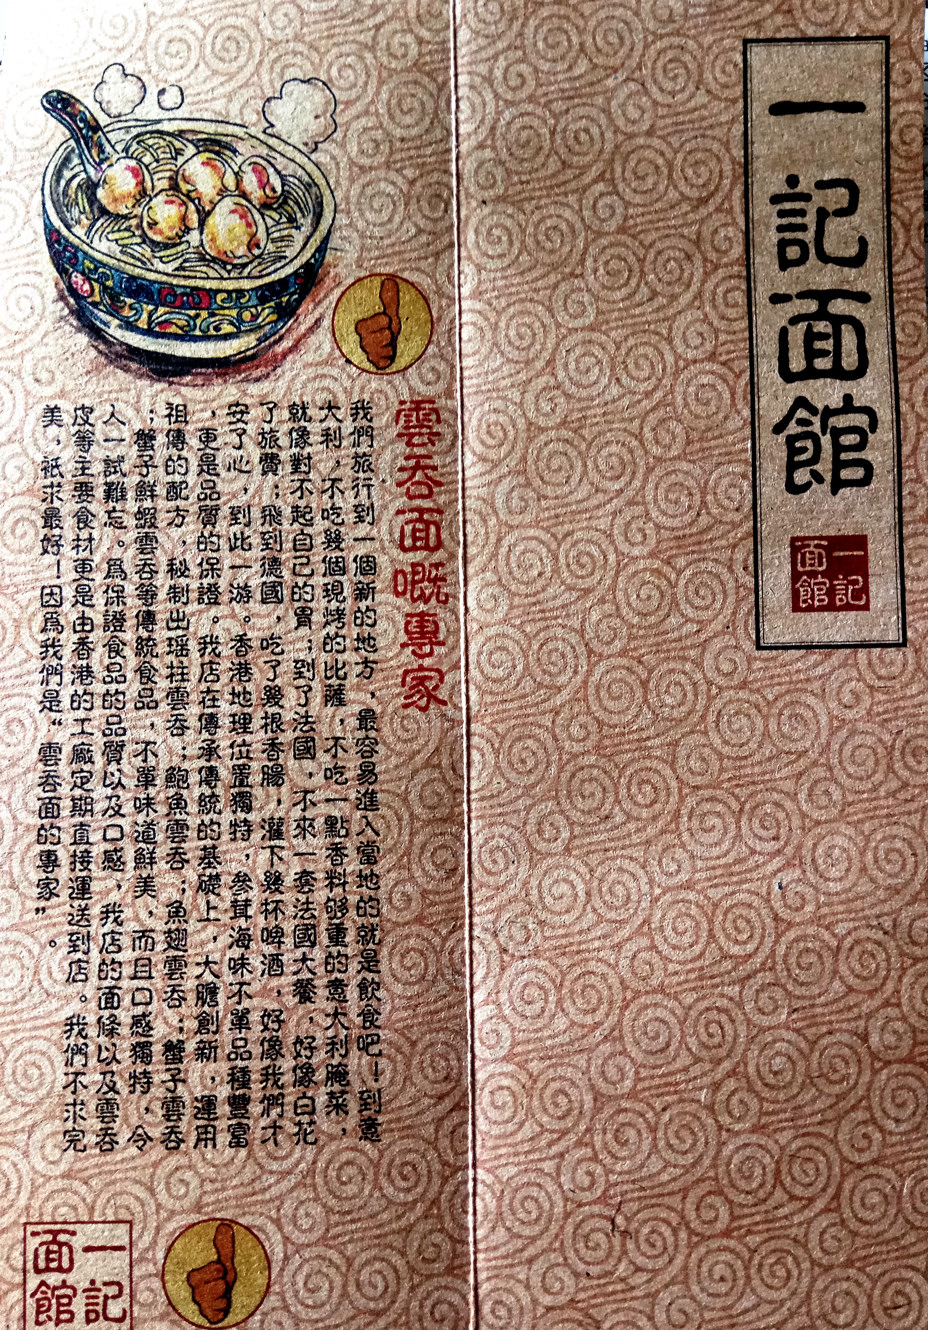 一記面館
一記
面館
雲吞面嘅專家
我們旅行到一個新的地方，最容易進入當地的就是飲食吧！到意
大利，不吃幾個現烤的比薩，不吃一點香料够重的意大利腌菜，
就像對不起自己的胃；到了法國，不來一套法國大餐，好像白花
了旅費；飛到德國，吃了幾根香腸，灌下幾杯啤酒，好像我們才
安了心，到此一游。香港地理位置獨特，參茸海味不單品種豐富
，更是品質的保證。我店在傳承傳統的基礎上，大膽創新，運用
祖傳的配方，秘制出瑶柱雲吞；鮑魚雲吞；魚翅雲吞；蟹子雲吞
；蟹子鮮蝦雲吞等傳統食品，不單味道鮮美，而且口感獨特，令
人一試難忘。爲保證食品的品質以及口感，我店的面條以及雲吞
皮等主要食材更是由香港的工廠定期直接運送到店。我們不求完
美，祇求最好！因爲我們是“雲吞面的專家”。
一記
面館